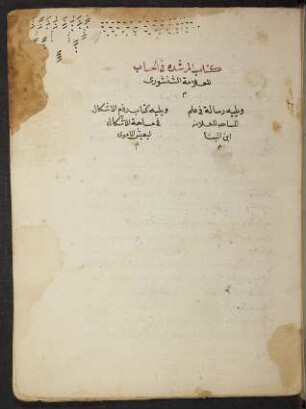 كتاب المرشده في الحساب
للعلامة الشنشوري
م
ويليه رسالة في علم
المساحه للعلامة
ابن البنا
م
ويليه كتاب رفع الاشكال
في مساحة الاشكال
ليعيش الاموي
م